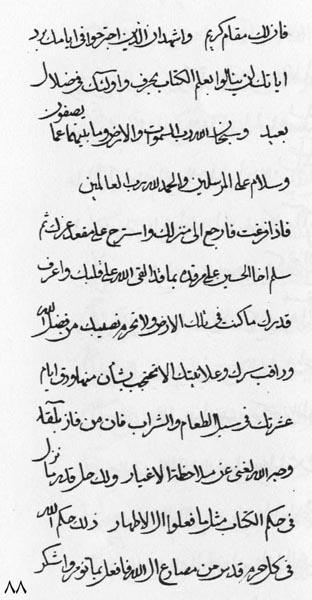 فان لك مقام كريم واشهد ان الذين اجترحوا في ايامك برد
اياتك لن ينالوا بعلم الكتاب بحرف واولئك في ضلال
بعيد وسبحان الله رب السموات والارض وما بينهما عما يصفون
وسلام على المرسلين والحمد لله رب العالمين
فاذا فرغت فارجع الى منزلك واسترح على مقعد عزك ثم
سلم اخا الحسين على مرقده بما قد القى الله على قلبك واعرف
قدرك ما كنت في تلك الارض ولا تحرم نصيبك من فضل الله
وراقب سرك وعلانيتك الا تحتجب بشأن منها ودق ايام
عشرتك في سبيل الطعام والشراب فان من فاز بلقاء
وجه الله لغنى عن ملاحظة الاغيار ولك حل قدر ما نزل
في حكم الكتاب مثل ما فعلوا ال الاطهار ذلك حكم الله
في كل حرم قدس من مصارع ال الله فافعل بما تؤمر واشكر
٨٨